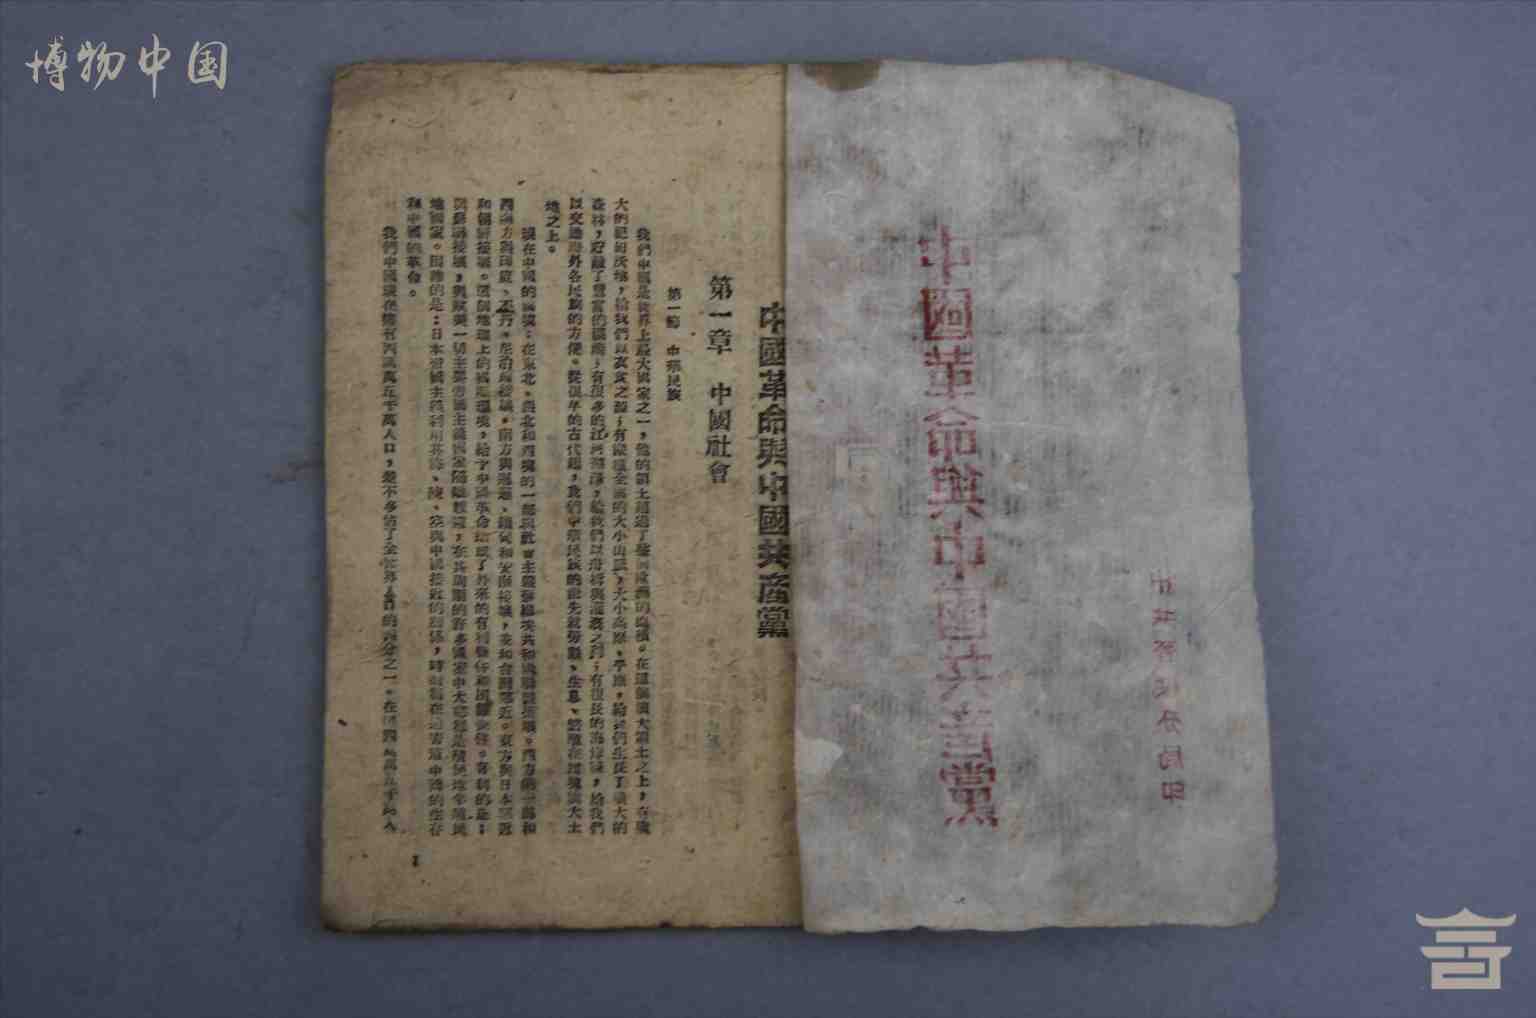 博物中国
中國革命與中國共產黨
中國革命與中國共產黨
第一章 中國社會
第一節 中華民族
我們中國是世界上最大國家之一，他的領土超過了整個歐洲的面積。在這個廣大領土之上，有廣
大的肥田沃地，給我們以衣食之源；有縱橫全國的大小山脈，大小高原、平原，給我們生長了廣大的
森林，貯藏了豐富的礦產；有很多的江河湖澤，給我們以舟楫與灌溉之利；有很長的海岸線，給我們
以交通海外各民族的方便。從很早的古代起，我們中華民族的祖先就勞動、生息、繁殖在這塊廣大土
地之上。
現在中國的國境：在東北、西北和西境的一部與社會主義蘇維埃共和國聯盟接壤。西方的一部和
西南方與印度、不丹、尼泊爾接壤。南方與暹羅、緬甸和安南接壤，並和台灣鄰近。東方與日本鄰近
和朝鮮接壤。這個地理上的國際環境，給予中國革命造成了外來的有利條件和困難條件。有利的是：
和中國的革命。
我們中國現在擁有四萬萬五千萬人口，差不多佔了全世界人口的四分之一。在這四萬萬五千萬人
1